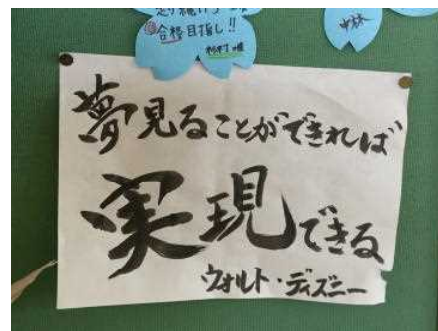 合格目指し!!
夢見ることができれば
実現できる
ウォルト・ディズニー